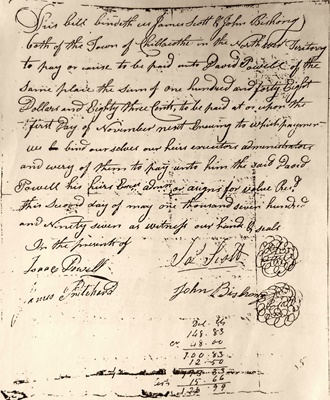 This bill bindeth us James Scott & John Bishong
both of the Town of Chillacothe in the North West Territory
to pay or cause to be paid unto David Powell of the
same place the sum of one hundred and forty Eight
Dollars and Eighty three Cents, to be paid at or upon the
first Day of November next Ensuing to which paymen
we bind ourselves our heirs executors administrators
and every of them to pay unto him the said David
Powell his heirs Exrs admrs or asigns for value Recd
this Second day of may one thousand seven hundred
and Ninety seven as witness our hands & seals
In the presents of
Isaac Powell
James Pritchard
Jas Scott
John Bishong
Dol. Cts
148.83
48.00
100.83
12.50
15.66